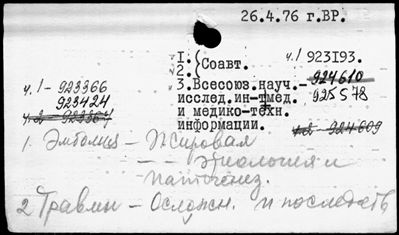 26.4.76 г.ВР.
1.{Соавт. ч.1 923193.
2.
ч.1- 923366
923424
ч.2 923367
3.Всесоюз.науч.- 924610
исслед.ин-т мед. 925578
и медико-техн.
информации. ч.2 - 924609
1. Эмболия - Жировая
- - - этиология и
патогенез.
2 Травмы - Осложн. и последств